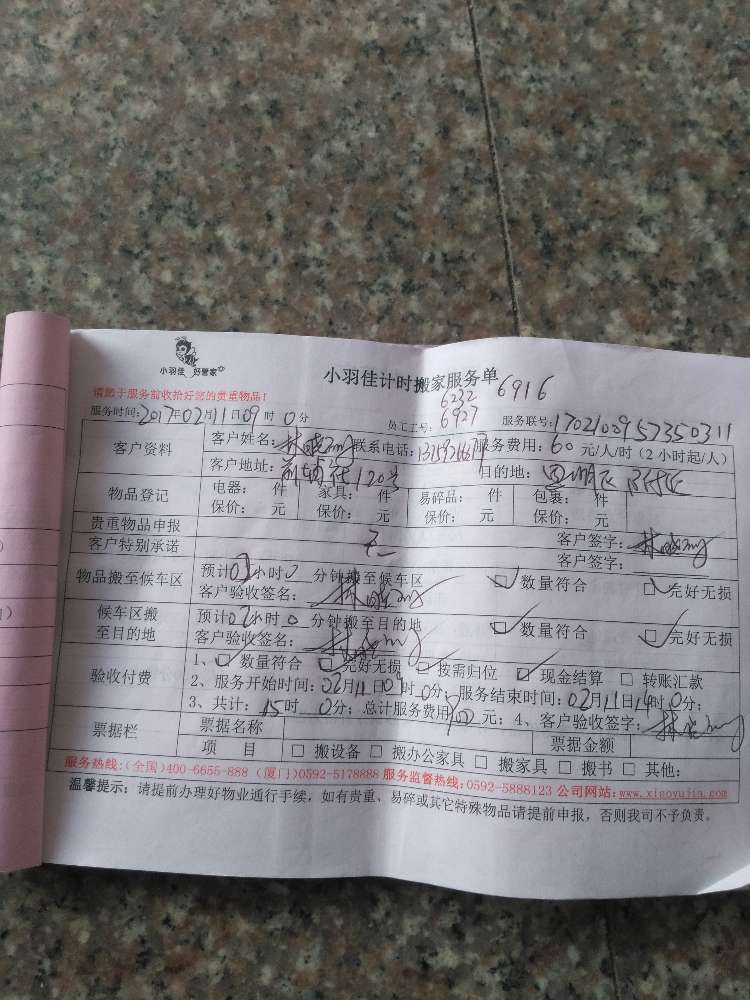 小羽佳 好管家
小羽佳计时搬家服务单
请勤于服务前收拾好您的贵重物品！
6232
6916
服务时间:2017年02月11日09时0分
员工工号:
6927
服务联号:1702100957350311
客户资料
客户姓名:
联系电话:
服务费用:60元/人/时(2小时起/人)
客户地址:
120号
目的地:
物品登记
电器: 件
家具: 件
易碎品: 件
包裹: 件
保价: 元
保价: 元
保价: 元
保价: 元
贵重物品申报
客户签字:
客户特别承诺
无
客户签字:
物品搬至候车区
预计0小时0分钟搬至候车区
☑数量符合
☑完好无损
客户验收签名:
候车区搬
至目的地
预计02小时0分钟搬至目的地
☑数量符合
☑完好无损
客户验收签名:
验收付费
1、☑数量符合 ☑完好无损 ☑按需归位 ☑现金结算 □转账汇款
2、服务开始时间:02月11日09时0分; 服务结束时间:02月11日14时0分;
3、共计:15时0分; 总计服务费用900元; 4、客户验收签字:
票据栏
票据名称
票据金额
项 目
□搬设备 □搬办公家具 □搬家具 □搬书 □其他:
服务热线:(全国)400-6655-888 (厦门)0592-5178888 服务监督热线:0592-5888123 公司网站:www.xiaoyujia.com
温馨提示: 请提前办理好物业通行手续，如有贵重、易碎或其它特殊物品请提前申报，否则我司不予负责。